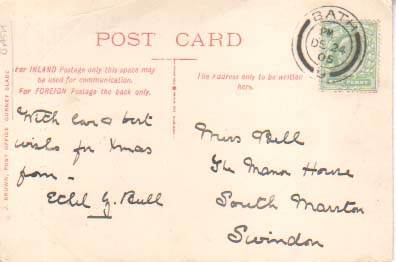 BATH
PM
DE 24
05
POST CARD
For INLAND Postage only this space may
be used for communication.
For FOREIGN Postage the back only.
The Address only to be written
here.
With love & best
wishes for Xmas
from -
Ethel G. Bull
Miss Bull
The Manor House
South Marston
Swindon
J. BROWN, POST OFFICE